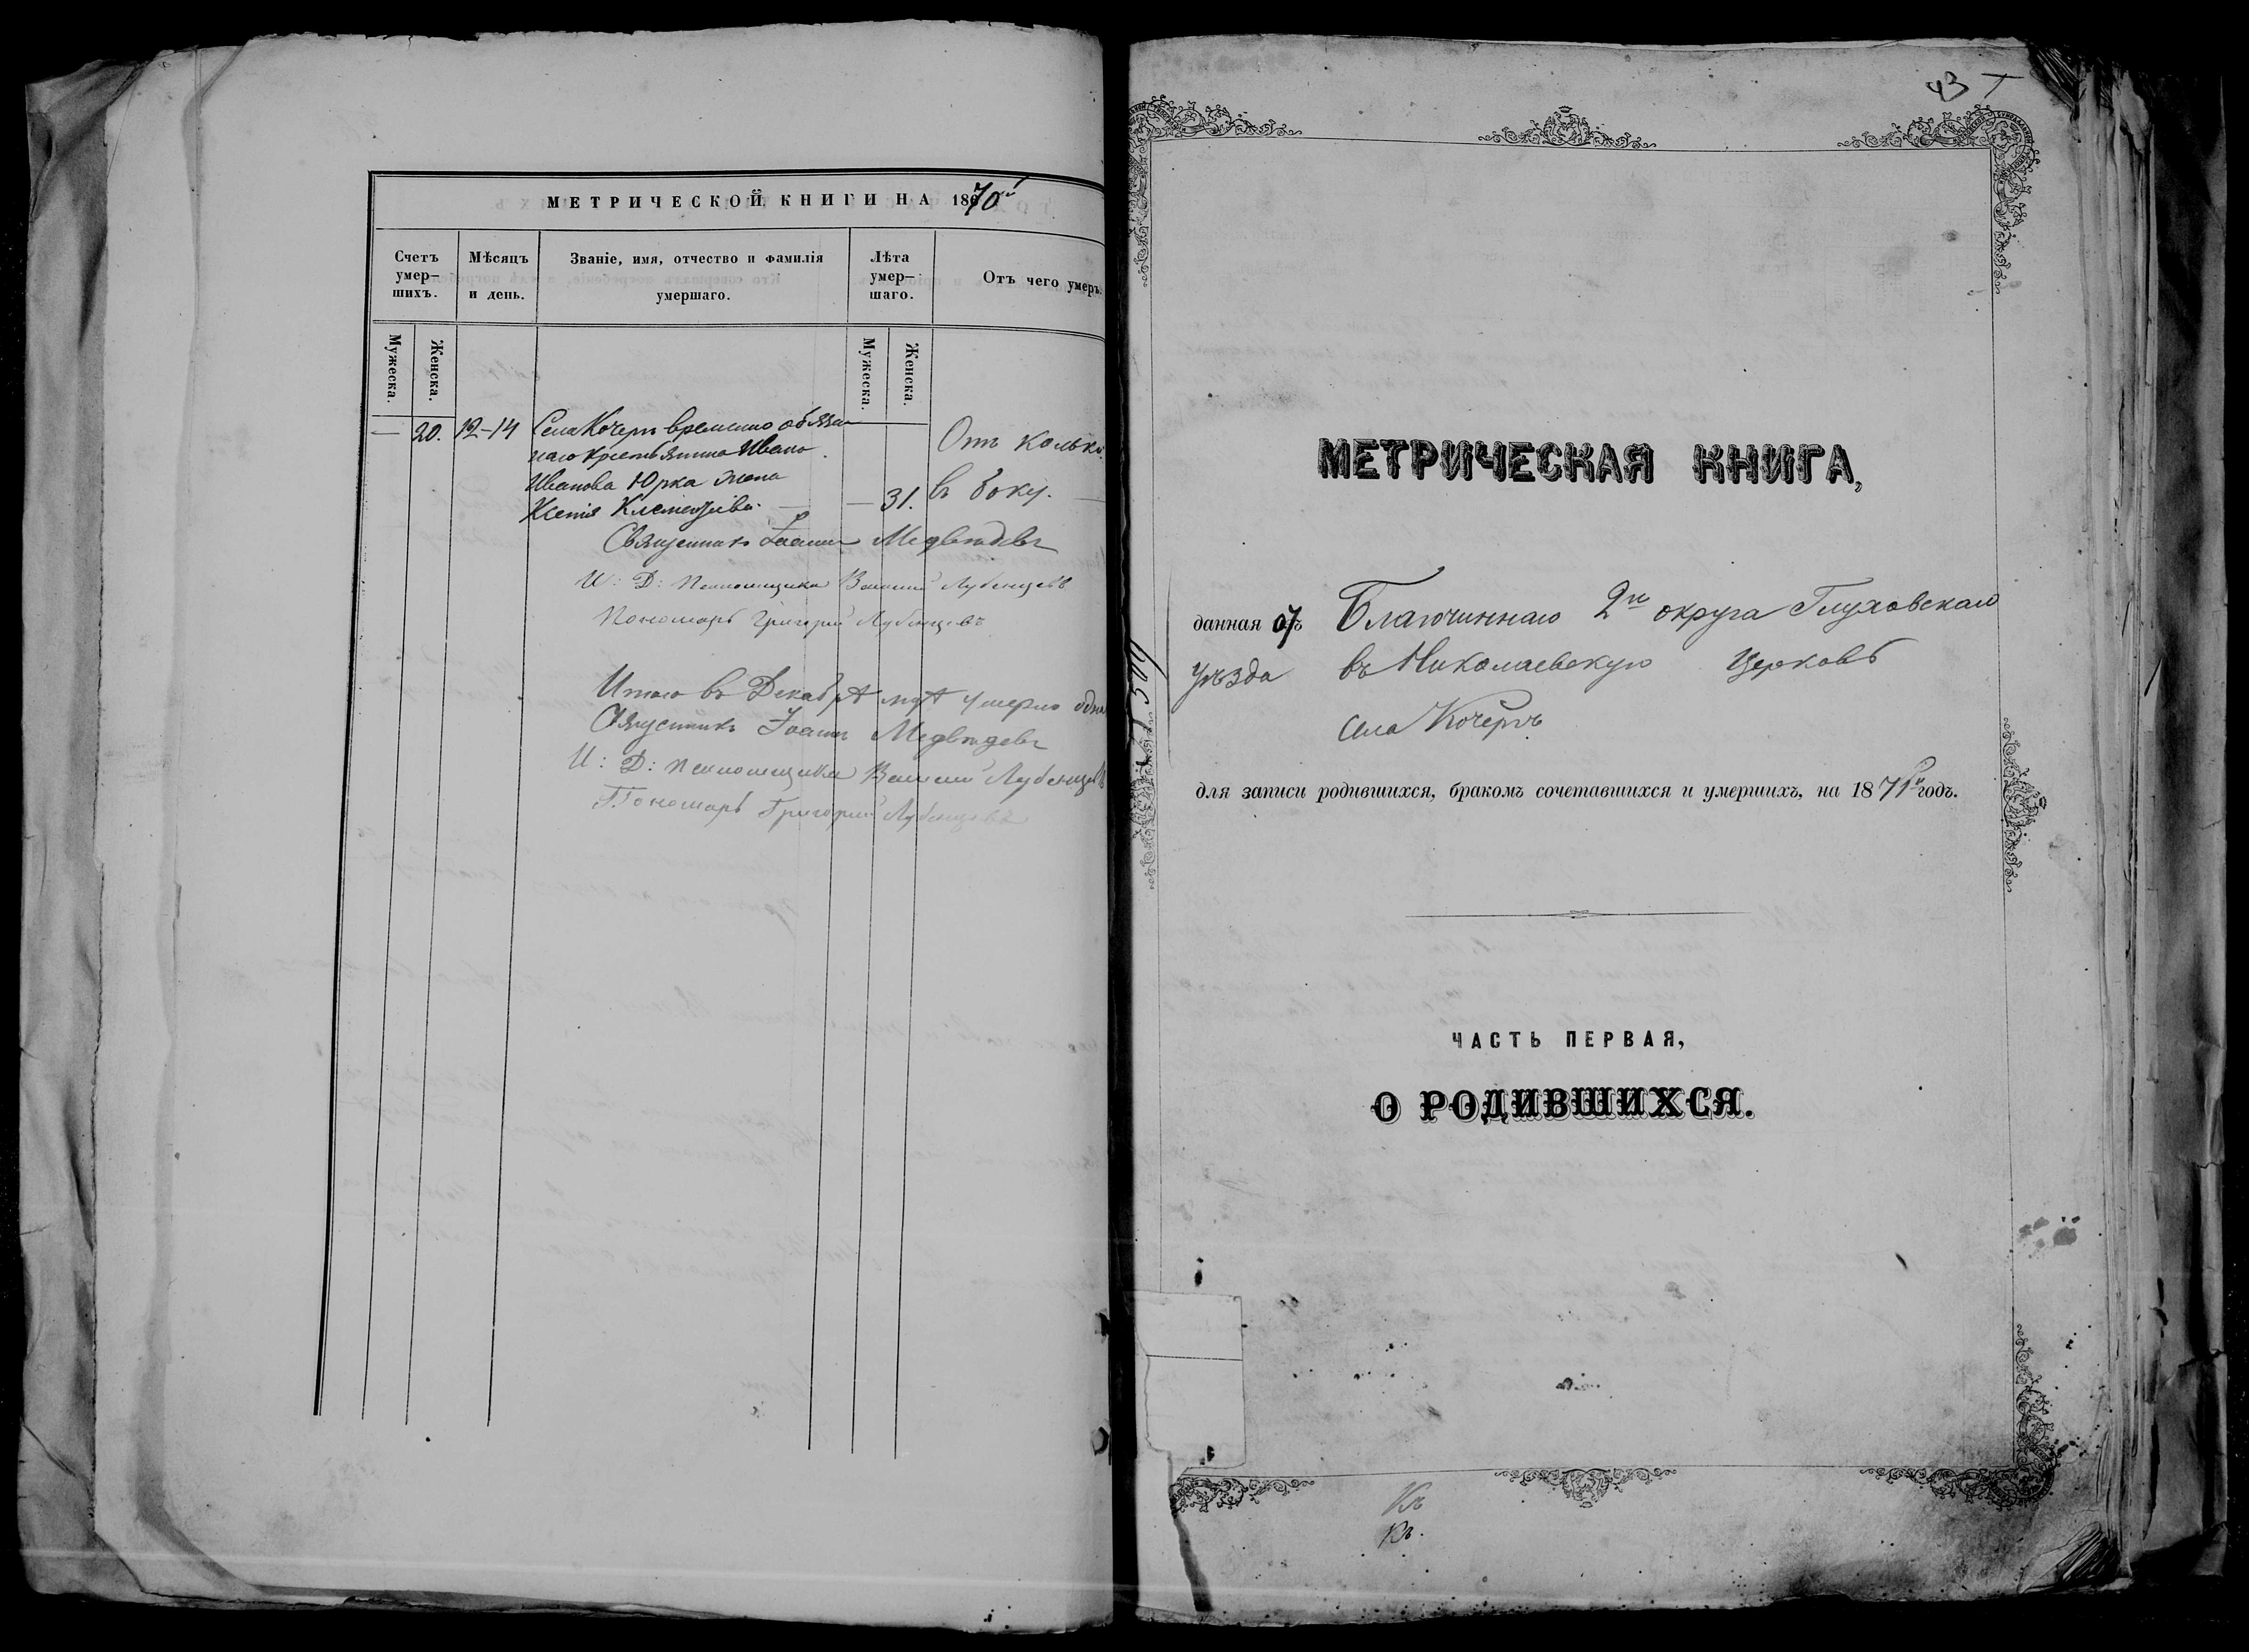 МЕТРИЧЕСКОЙ КНИГИ НА 1870й
Счетъ умер-шихъ.
Мѣсяцъ и день.
Званіе, имя, отчество и фамилія умершаго.
Лѣта умер-шаго.
Отъ чего умеръ.
Мужеска.
Женска.
Мужеска.
Женска.
— 20. 12-14 Села Кочергъ временно обязан
наго крестьянина Ивана
Иванова Юрка жена
Ксенія Климентіева. — — 31.
Отъ колька
въ боку. —
Священникъ Іоаннъ Медвѣдевъ
И: Д: Псаломщика Василій Лубенцовъ
Пономарь Григорій Лубенцовъ
Итого въ Декабрѣ мцѣ умерло одна
Священникъ Іоаннъ Медвѣдевъ
И: Д: Псаломщика Василій Лубенцовъ
Пономарь Григорій Лубенцовъ
43
МЕТРИЧЕСКАЯ КНИГА,
данная отъ Благочиннаго 2го округа Глуховскаго
уѣзда въ Николаевскую Церковь
села Кочергъ
для записи родившихся, бракомъ сочетавшихся и умершихъ, на 1871й годъ.
ЧАСТЬ ПЕРВАЯ,
О РОДИВШИХСЯ.
Къ
Къ.